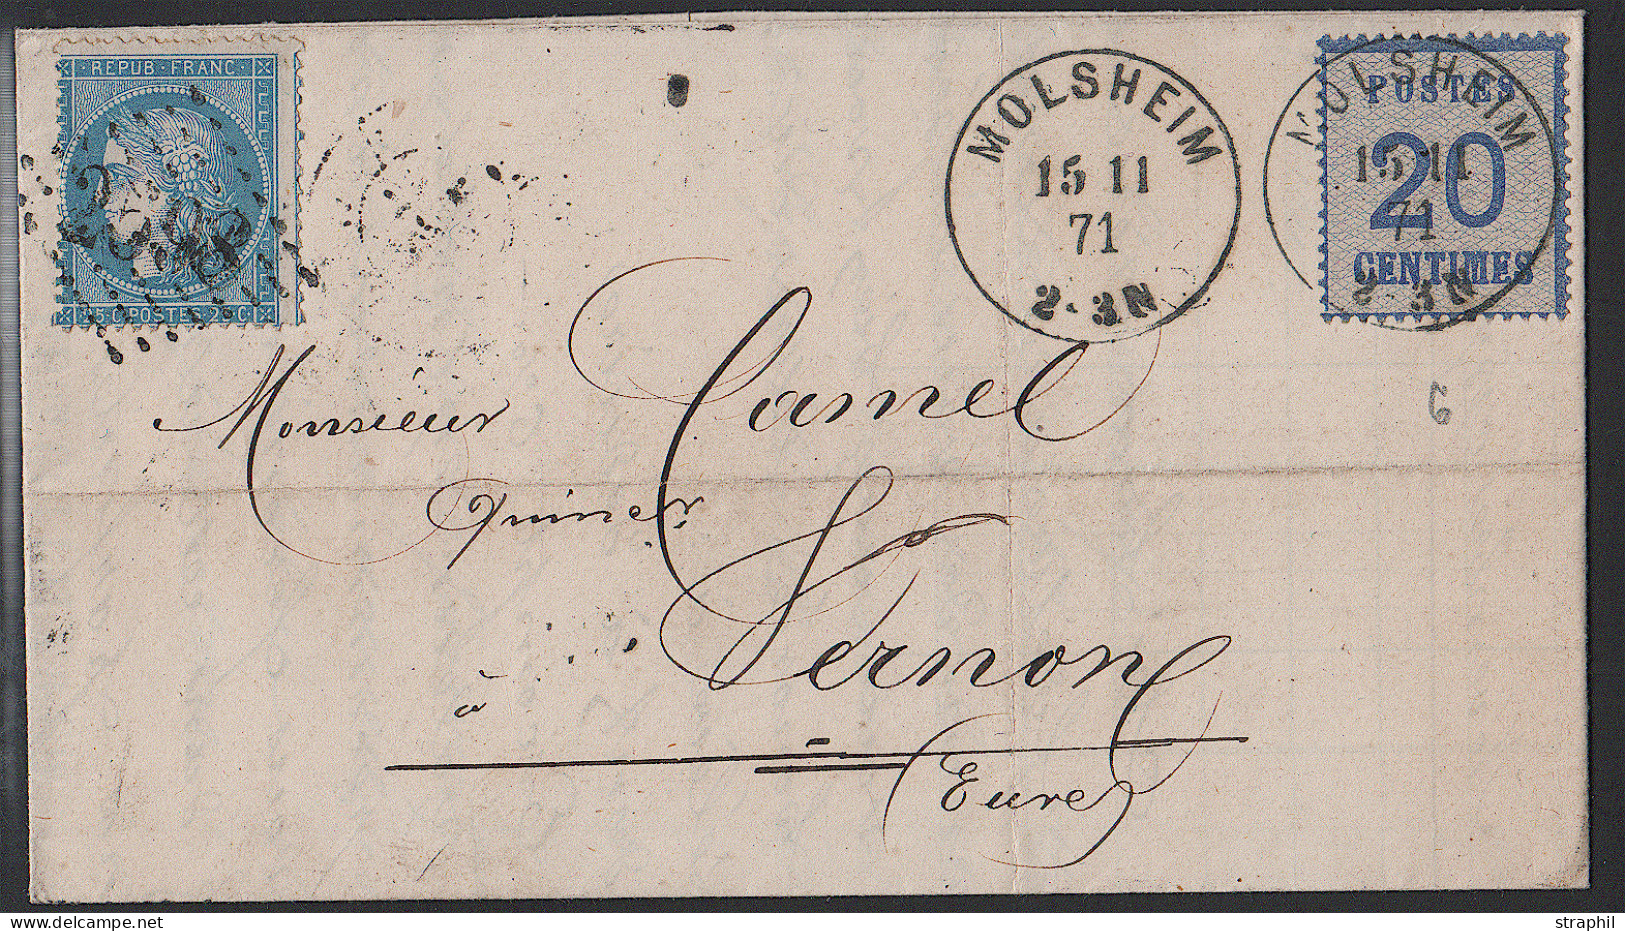 REPUB·FRANC·
25 C·POSTES·25 C·
2598
MOLSHEIM
15 11
71
2-3N
POSTES
20
CENTIMES
MOLSHEIM
15 11
71
2-3N
Monsieur Camel
à Vernon
(Eure)
straphil